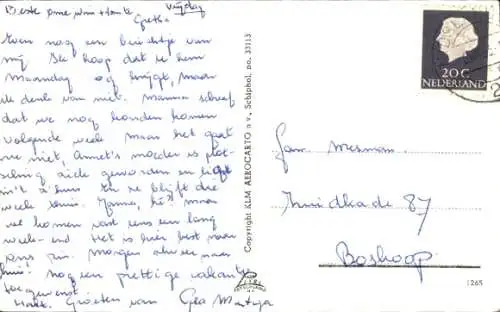 Beste ome Wim + tante Vrijdag
Gretha
Even nog een berichtje van
mij. Ik hoop dat u hem
Maandag nog krijgt, maar
ik denk van niet. Mamma schreef
dat we nog konden komen
volgende week. Maar het gaat
nu niet, Annet's moeder is plot-
seling ziek geworden en ligt
in 't z'huis. En ze blijft die
week thuis. Jammer, hè? maar
we komen vast eens een lang
week-end. Het is hier best naar
ons zin. Morgen alweer naar
huis! Nog een prettige vakantie
toegewenst.
Hart. Groeten van Gea
Copyright KLM AEROCARTO n.v., Schiphol, no. 33113
20 C
NEDERLAND
Fam
Zuidkade 87
Boskoop
1265